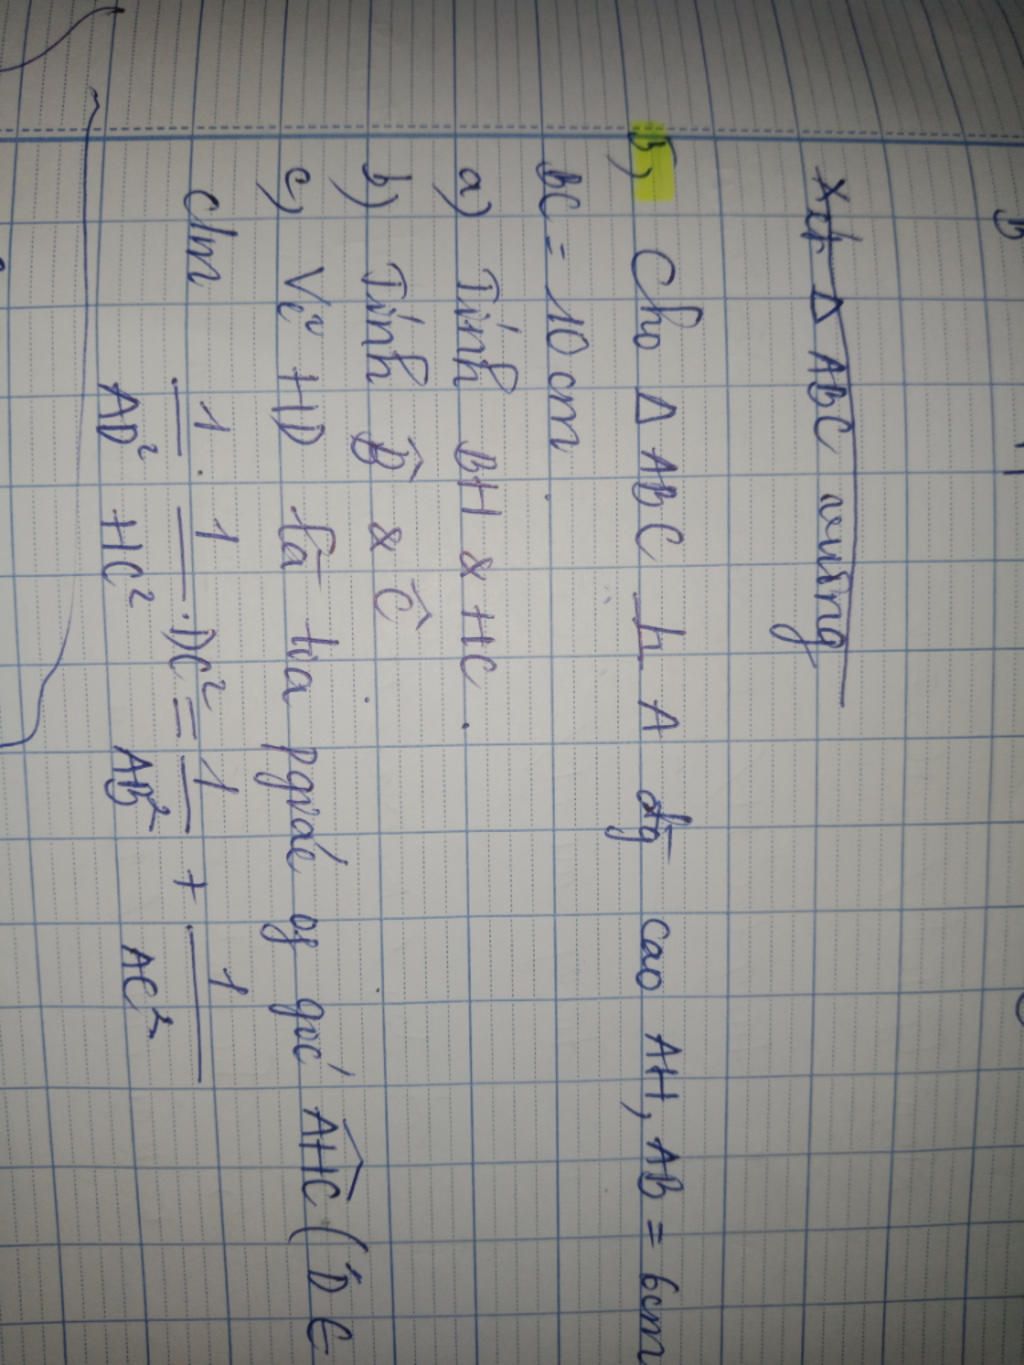 Xét Δ ABC vuông
B, Cho Δ ABC ⊥ A đg cao AH, AB = 6cm
BC = 10cm.
a) Tính BH & HC.
b) Tính B̂ & Ĉ
c, Vẽ HD là tia pgiác of góc AHC (D ∈
c/m 1/AD² . 1/HC² . DC² = 1/AB² + 1/AC²